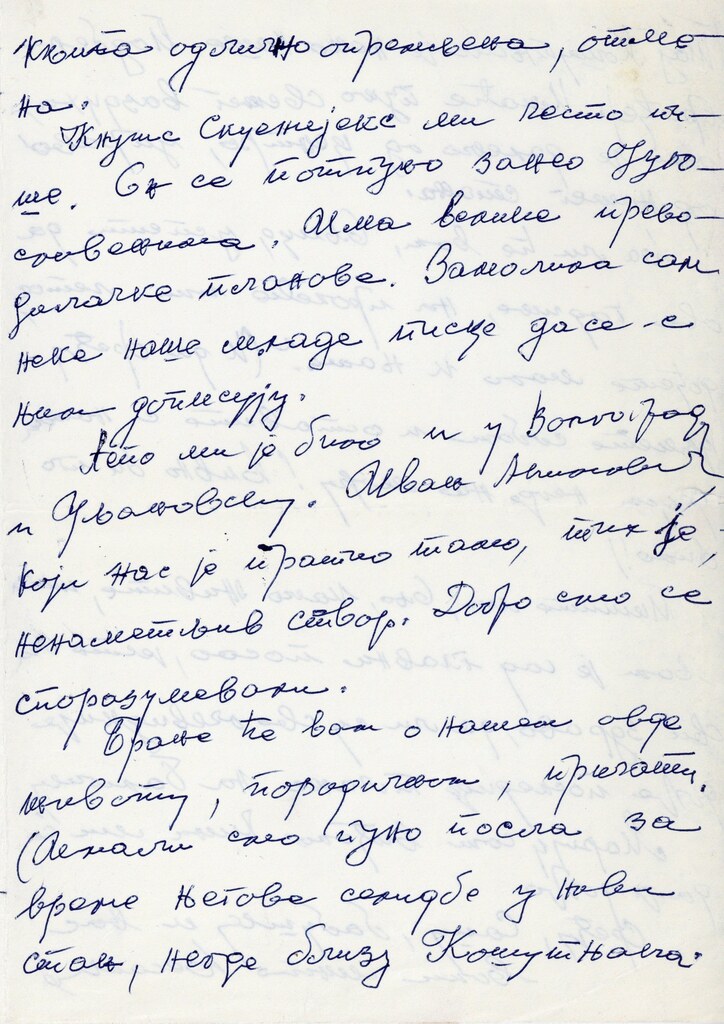 књига одлично опремљена, отме-
на.
Кнутс Скујенијекс ми често пи-
ше. Он се потпуно занео Југо-
словенима. Има велике прево-
дилачке планове. Замолила сам
неке наше младе писце да се с
њим дописују.
Лепо ми је било и у Волгограду
и Уљановску. Иван
који нас је пратио тамо, тих је,
ненаметљив створ. Добро смо се
споразумевали.
Бране ће вам о нашем овде
животу, породичном, причати.
(Имали смо пуно посла за
време његове сеидбе у нови
стан, негде близу Кошутњака.